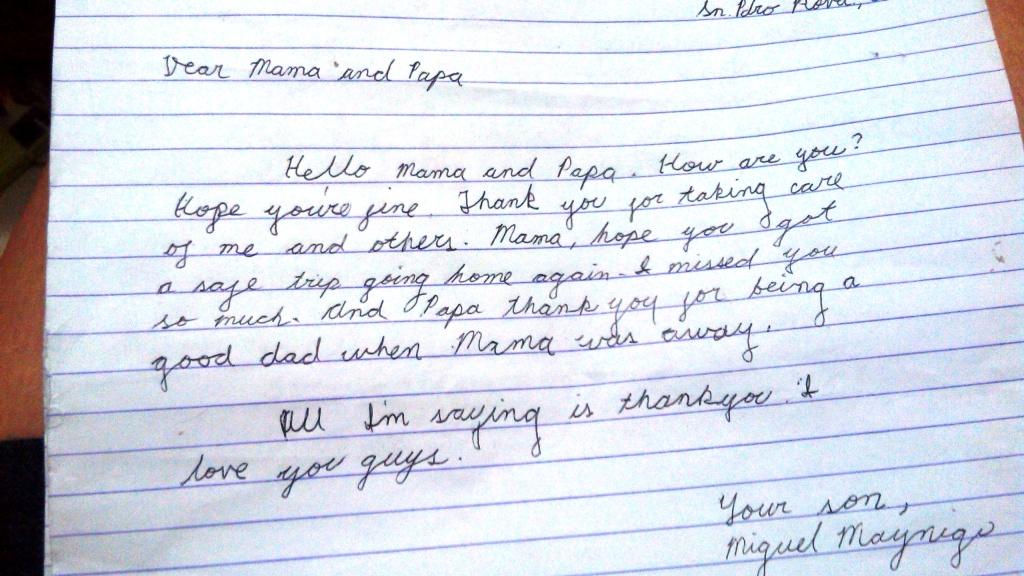 Sn. Pdro
Dear Mama and Papa
Hello Mama and Papa. How are you?
Hope you're fine. Thank you for taking care
of me and others. Mama, hope you got
a safe trip going home again. I missed you
so much. And Papa thank you for being a
good dad when Mama was away.
All I'm saying is thankyou. I
love you guys.
Your son,
Miguel Maynigo